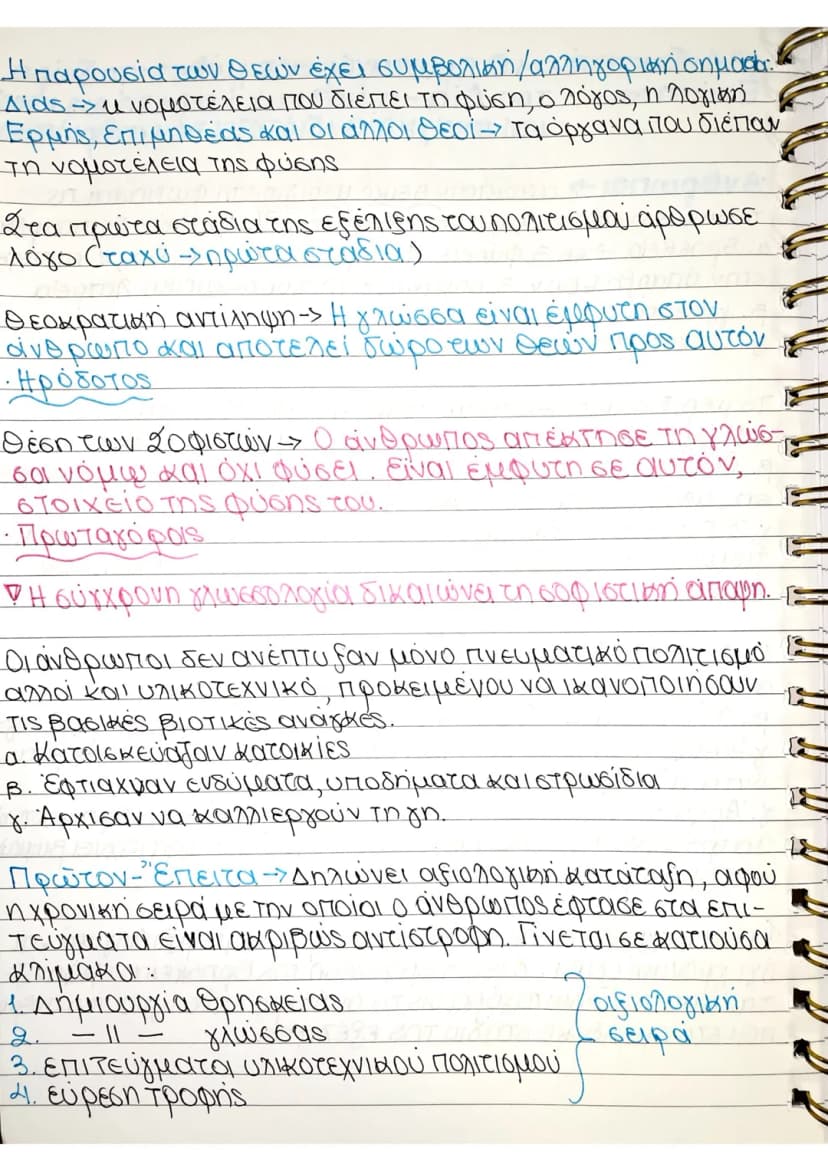 Η παρουσία των θεών έχει συμβολική/αλληγορική σημασία:
Δίας → η νομοτέλεια που διέπει τη φύση, ο λόγος, η λογική
Ερμής, Επιμηθέας και οι άλλοι θεοί → Τα όργανα που διέπουν
τη νομοτέλεια της φύσης
Στα πρώτα στάδια της εξέλιξης του πολιτισμού άρθρωσε
λόγο (ταχύ → πρώτα στάδια)
Θεοκρατική αντίληψη → Η γλώσσα είναι έμφυτη στον
άνθρωπο και αποτελεί δώρο των θεών προς αυτόν
· Ηρόδοτος
Θέση των Σοφιστών → Ο άνθρωπος απέκτησε τη γλώσ-
σα νόμω και όχι φύσει. Είναι έμφυτη σε αυτόν,
στοιχείο της φύσης του.
· Πρωταγόρας
▽ Η σύγχρονη γλωσσολογία δικαιώνει τη σοφιστική άποψη.
Οι άνθρωποι δεν ανέπτυξαν μόνο πνευματικό πολιτισμό
αλλά και υλικοτεχνικό, προκειμένου να ικανοποιήσουν
τις βασικές βιοτικές ανάγκες.
α. Κατασκεύαζαν κατοικίες
β. Έφτιαχναν ενδύματα, υποδήματα και στρωσίδια
γ. Άρχισαν να καλλιεργούν τη γη.
Πρῶτον - Ἔπειτα → Δηλώνει αξιολογική κατάταξη, αφού
η χρονική σειρά με την οποία ο άνθρωπος έφτασε στα επι-
τεύγματα είναι ακριβώς αντίστροφη. Γίνεται σε κατιούσα
κλίμακα:
1. Δημιουργία θρησκείας
2. — 11 — γλώσσας
3. επιτεύγματα υλικοτεχνικού πολιτισμού
4. εύρεση τροφής
αξιολογική
σειρά